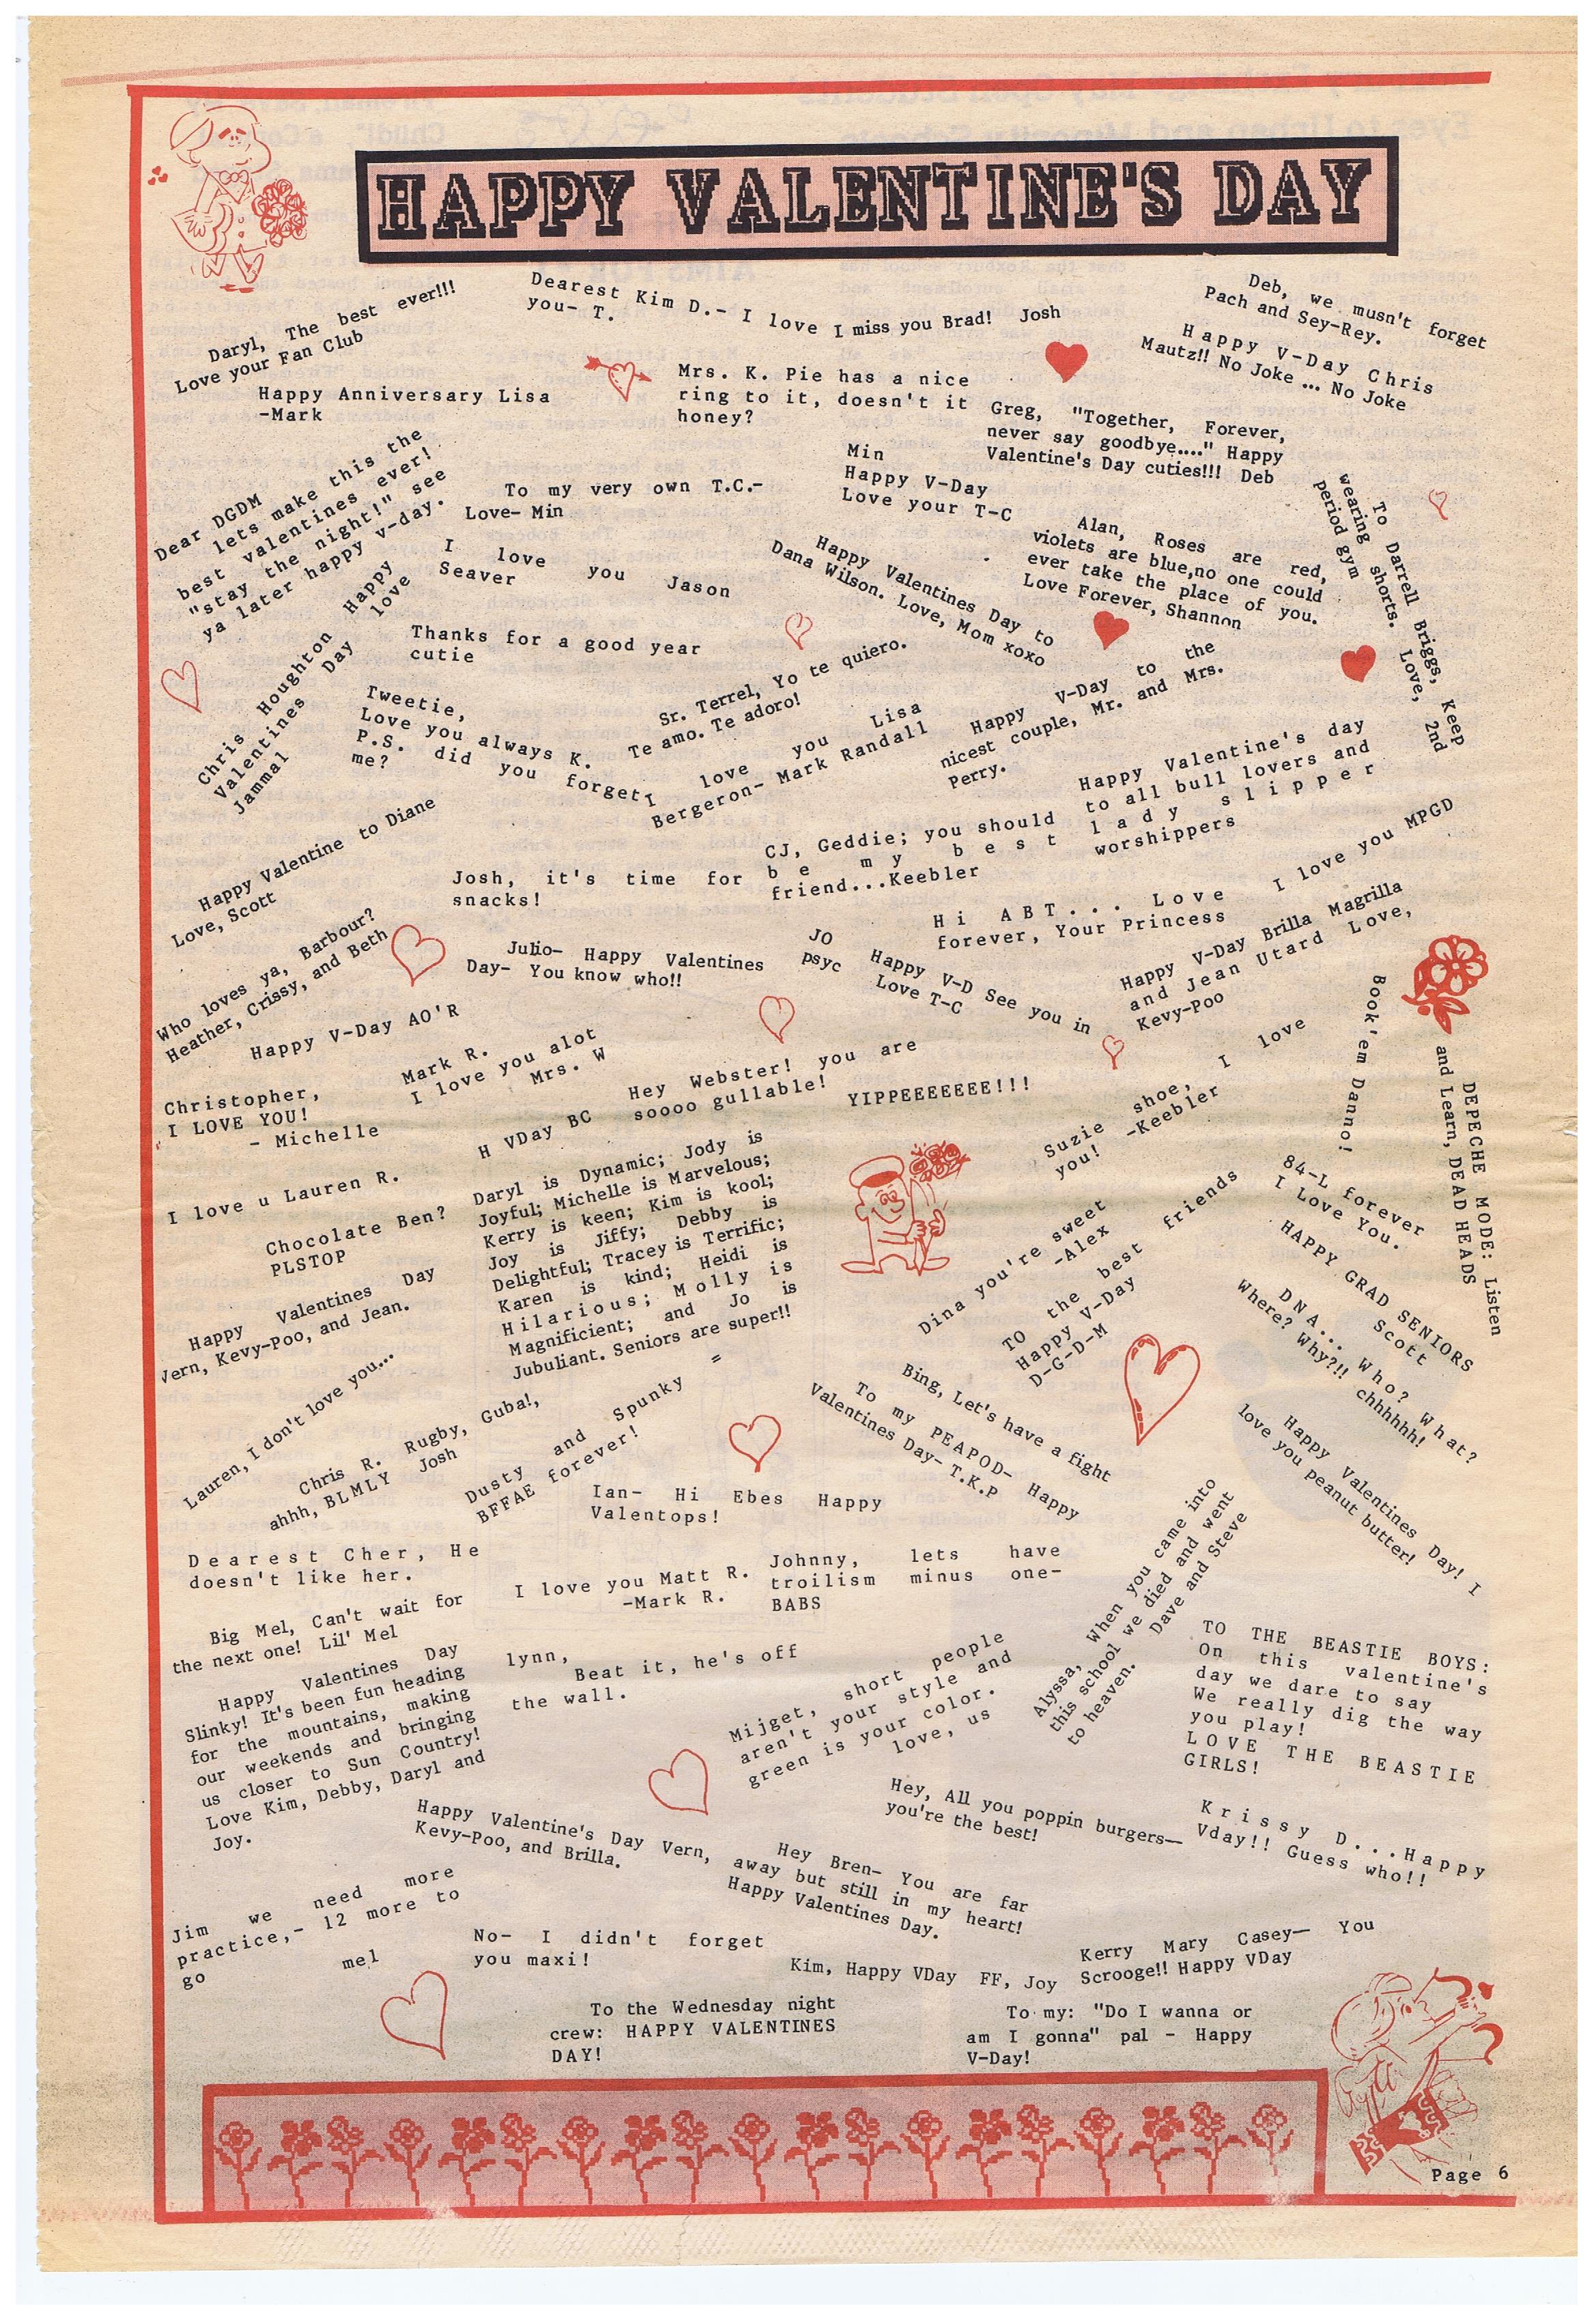 HAPPY VALENTINE'S DAY
Daryl, The best ever!!!
Love your Fan Club
Dearest Kim D.- I love
you- T.
I miss you Brad! Josh
Deb, we musn't forget
Pach and Sey-Rey.
Happy V-Day Chris
Mautz!! No Joke ... No Joke
Happy Anniversary Lisa
-Mark
Mrs. K. Pie has a nice
ring to it, doesn't it
honey?
Greg, "Together, Forever,
never say goodbye...." Happy
Valentine's Day cuties!!! Deb
Dear DGDM
lets make this the
best valentines ever!
"stay the night!" see
ya later happy v-day.
To my very own T.C.-
Love- Min
Min
Happy V-Day
Love your T-C
To Darrell Briggs, Keep
wearing shorts. Love, 2nd
period gym
I love you Jason
Seaver
Happy Valentines Day to
Dana Wilson. Love, Mom xoxo
Alan, Roses are red,
violets are blue,no one could
ever take the place of you.
Love Forever, Shannon
Chris Houghton Happy
Valentines Day love
Jammal
Thanks for a good year
cutie
Tweetie,
Love you always K.
P.S. did you forget
me?
Sr. Terrel, Yo te quiero.
Te amo. Te adoro!
I love you Lisa
Bergeron- Mark Randall
Happy V-Day to the
nicest couple, Mr. and Mrs.
Perry.
Happy Valentine's day
to all bull lovers and
lady slipper
worshippers
Happy Valentine to Diane
Love, Scott
Josh, it's time for
snacks!
CJ, Geddie; you should
be my best
friend...Keebler
I love you MPGD
Hi ABT... Love
forever, Your Princess
Who loves ya, Barbour?
Heather, Crissy, and Beth
Julio- Happy Valentines
Day- You know who!!
JO
Happy V-D See you in
psyc
Love T-C
Happy V-Day Brilla Magrilla
and Jean Utard Love,
Kevy-Poo
Book'em Danno!
Happy V-Day AO'R
Mark R.
I love you alot
Mrs. W
Christopher,
I LOVE YOU!
- Michelle
Hey Webster! you are
soooo gullable!
YIPPEEEEEEE!!!
H VDay BC
Suzie shoe, I love
you! -Keebler
DEPECHE MODE: Listen
and Learn, DEAD HEADS
I love u Lauren R.
Daryl is Dynamic; Jody is
Joyful; Michelle is Marvelous;
Kerry is keen; Kim is kool;
Joy is Jiffy; Debby is
Delightful; Tracey is Terrific;
Karen is kind; Heidi is
Hilarious; Molly is
Magnificient; and Jo is
Jubuliant. Seniors are super!!
84-L forever
I Love You.
HAPPY GRAD SENIORS
Scott
Chocolate Ben?
PLSTOP
Dina you're sweet
-Alex
TO the best friends
Happy V-Day
D-G-D-M
DNA... Who? What?
Where? Why?!! chhhhhh!
Happy Valentines Day
Vern, Kevy-Poo, and Jean.
Lauren, I don't love you...
Chris R. Rugby, Guba!,
ahhh, BLMLY Josh
Dusty and Spunky =
BFFAE forever!
Bing, Let's have a fight
To my PEAPOD- Happy
Valentines Day- T.K.P
Happy Valentines Day! I
love you peanut butter!
Ian- Hi Ebes Happy
Valentops!
Dearest Cher, He
doesn't like her.
I love you Matt R.
-Mark R.
Johnny, lets have
troilism minus one-
BABS
Alyssa, When you came into
this school we died and went
to heaven. Dave and Steve
Big Mel, Can't wait for
the next one! Lil' Mel
TO THE BEASTIE BOYS:
On this valentine's
day we dare to say
We really dig the way
you play!
LOVE THE BEASTIE
GIRLS!
Happy Valentines Day
Slinky! It's been fun heading
for the mountains, making
our weekends and bringing
us closer to Sun Country!
Love Kim, Debby, Daryl and
Joy.
lynn,
Beat it, he's off
the wall.
Mijget, short people
aren't your style and
green is your color.
love, us
Hey, All you poppin burgers—
you're the best!
Krissy D...Happy
Vday!! Guess who!!
Happy Valentine's Day Vern,
Kevy-Poo, and Brilla.
Hey Bren- You are far
away but still in my heart!
Happy Valentines Day.
Jim we need more
practice,- 12 more to
go mel
No- I didn't forget
you maxi!
Kim, Happy VDay FF, Joy
Kerry Mary Casey— You
Scrooge!! Happy VDay
To the Wednesday night
crew: HAPPY VALENTINES
DAY!
To my: "Do I wanna or
am I gonna" pal - Happy
V-Day!
Page 6